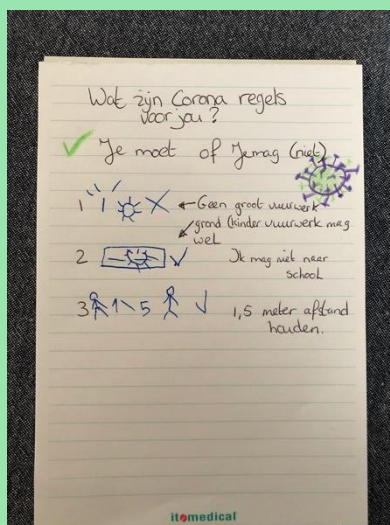 Wat zijn Corona regels
voor jou?
Je moet of Je mag (niet)
1 ← Geen groot vuurwerk
grond (kinder vuurwerk mag
wel
2 Ik mag niet naar
school
3 1,5 1,5 meter afstand
houden.
itomedical